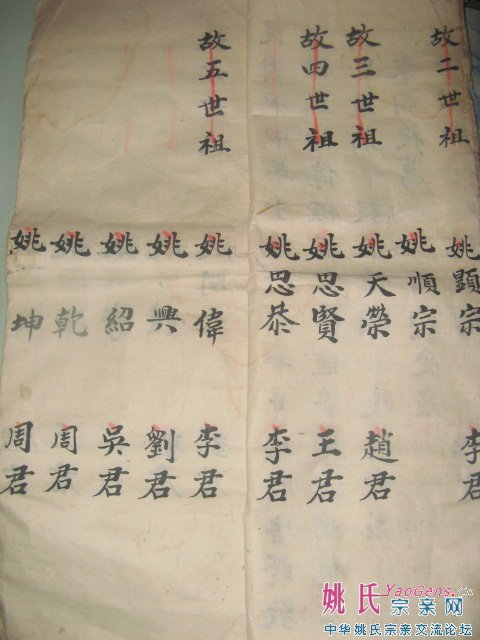 故二世祖 姚顯宗 李君
姚順宗
故三世祖 姚天榮 趙君
故四世祖 姚思賢 王君
姚思恭 李君
故五世祖 姚偉 李君
姚興 劉君
姚紹 吳君
姚乾 周君
姚坤 周君
姚氏YaoGens.Cn宗亲网
中华姚氏宗亲交流论坛